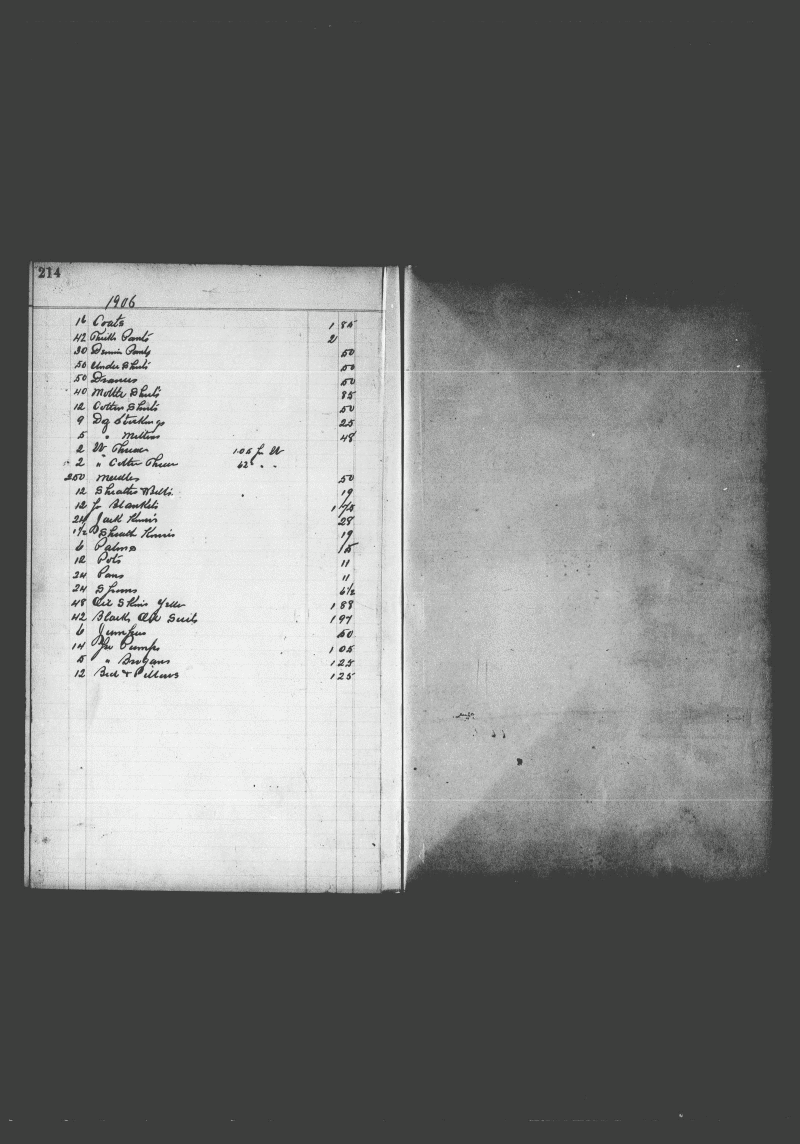 214
1906
16 Coats 1 85
42 Thick Pants 2
30 Denim Pants 50
50 Under Shirts 50
50 Drawers 50
40 Mottle Shirts 85
12 Cotton Shirts 50
9 Dz Stockings 25
5 " Mittens 48
2 W 1.05 W
2 " Cotton 62
250 Needles 50
12 Sheaths & Belts 19
12 Pr Blankets 1 75
24 Jack Knives 28
1½ D Sheath Knives 19
6 Palms 15
12 Pots 11
24 Pans 11
24 Spoons 6½
48 Oil Skins Yellow 1 88
42 Black Oil Suits 1 97
6 Jumpers 50
14 Pr Pumps 1 05
5 " Brogans 1 25
12 Bed & Pillows 1 25